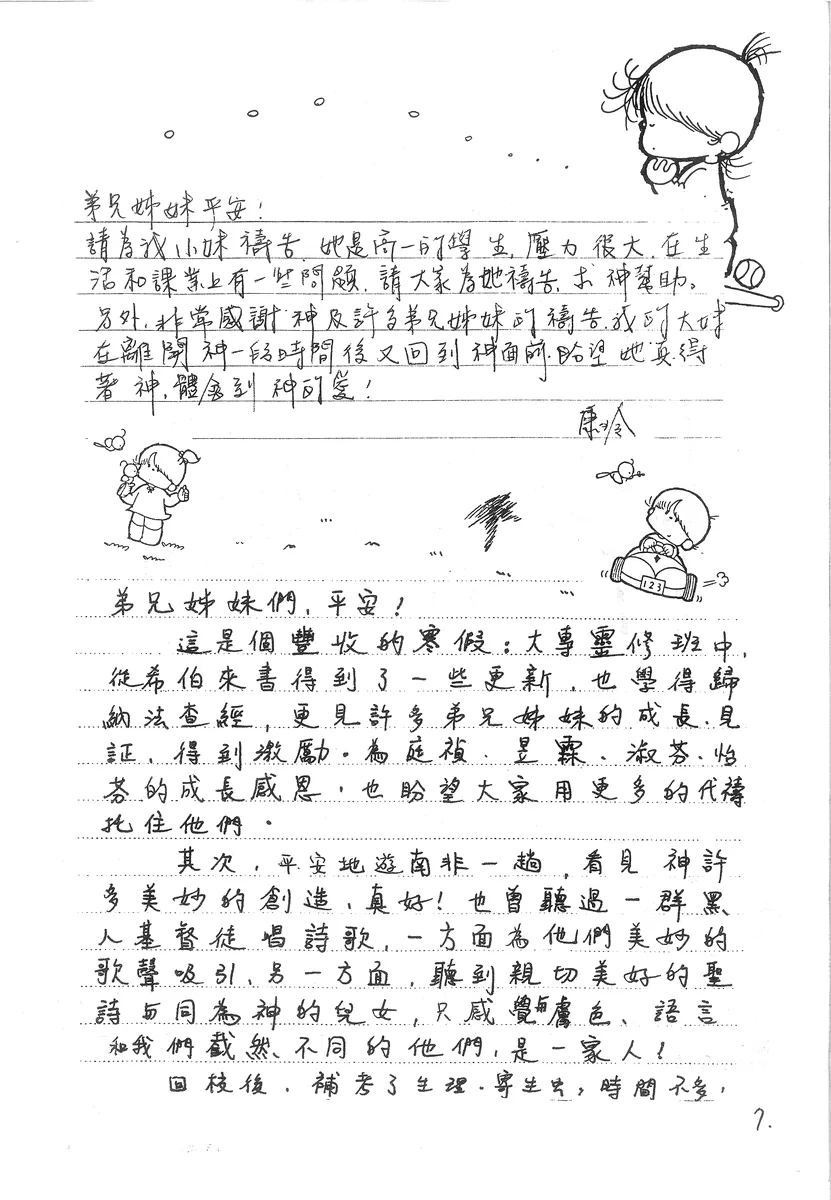 弟兄姊妹平安！
請為我小妹禱告，她是高一的學生，壓力很大，在生
活和課業上有一些問題，請大家為她禱告，求神幫助。
另外，非常感謝神及許多弟兄姊妹的禱告，我的大妹
在離開神一段時間後又回到神面前，盼望她真得
著神，體會到神的愛！
康玲
123
弟兄姊妹們，平安！
這是個豐收的寒假；大專靈修班中，
從希伯來書得到了一些更新，也學得歸
納法查經，更見許多弟兄姊妹的成長、見
証，得到激勵。為庭禎、昱霖、淑芬、怡
芬的成長感恩，也盼望大家用更多的代禱
托住他們。
其次，平安地遊南非一趟，看見神許
多美妙的創造，真好！也曾聽過一群黑
人基督徒唱詩歌，一方面為他們美妙的
歌聲吸引，另一方面，聽到親切美好的聖
詩与同為神的兒女，只感覺與膚色、語言
和我們截然不同的他們，是一家人！
回校後，補考了生理、寄生虫，時間不多，
7.